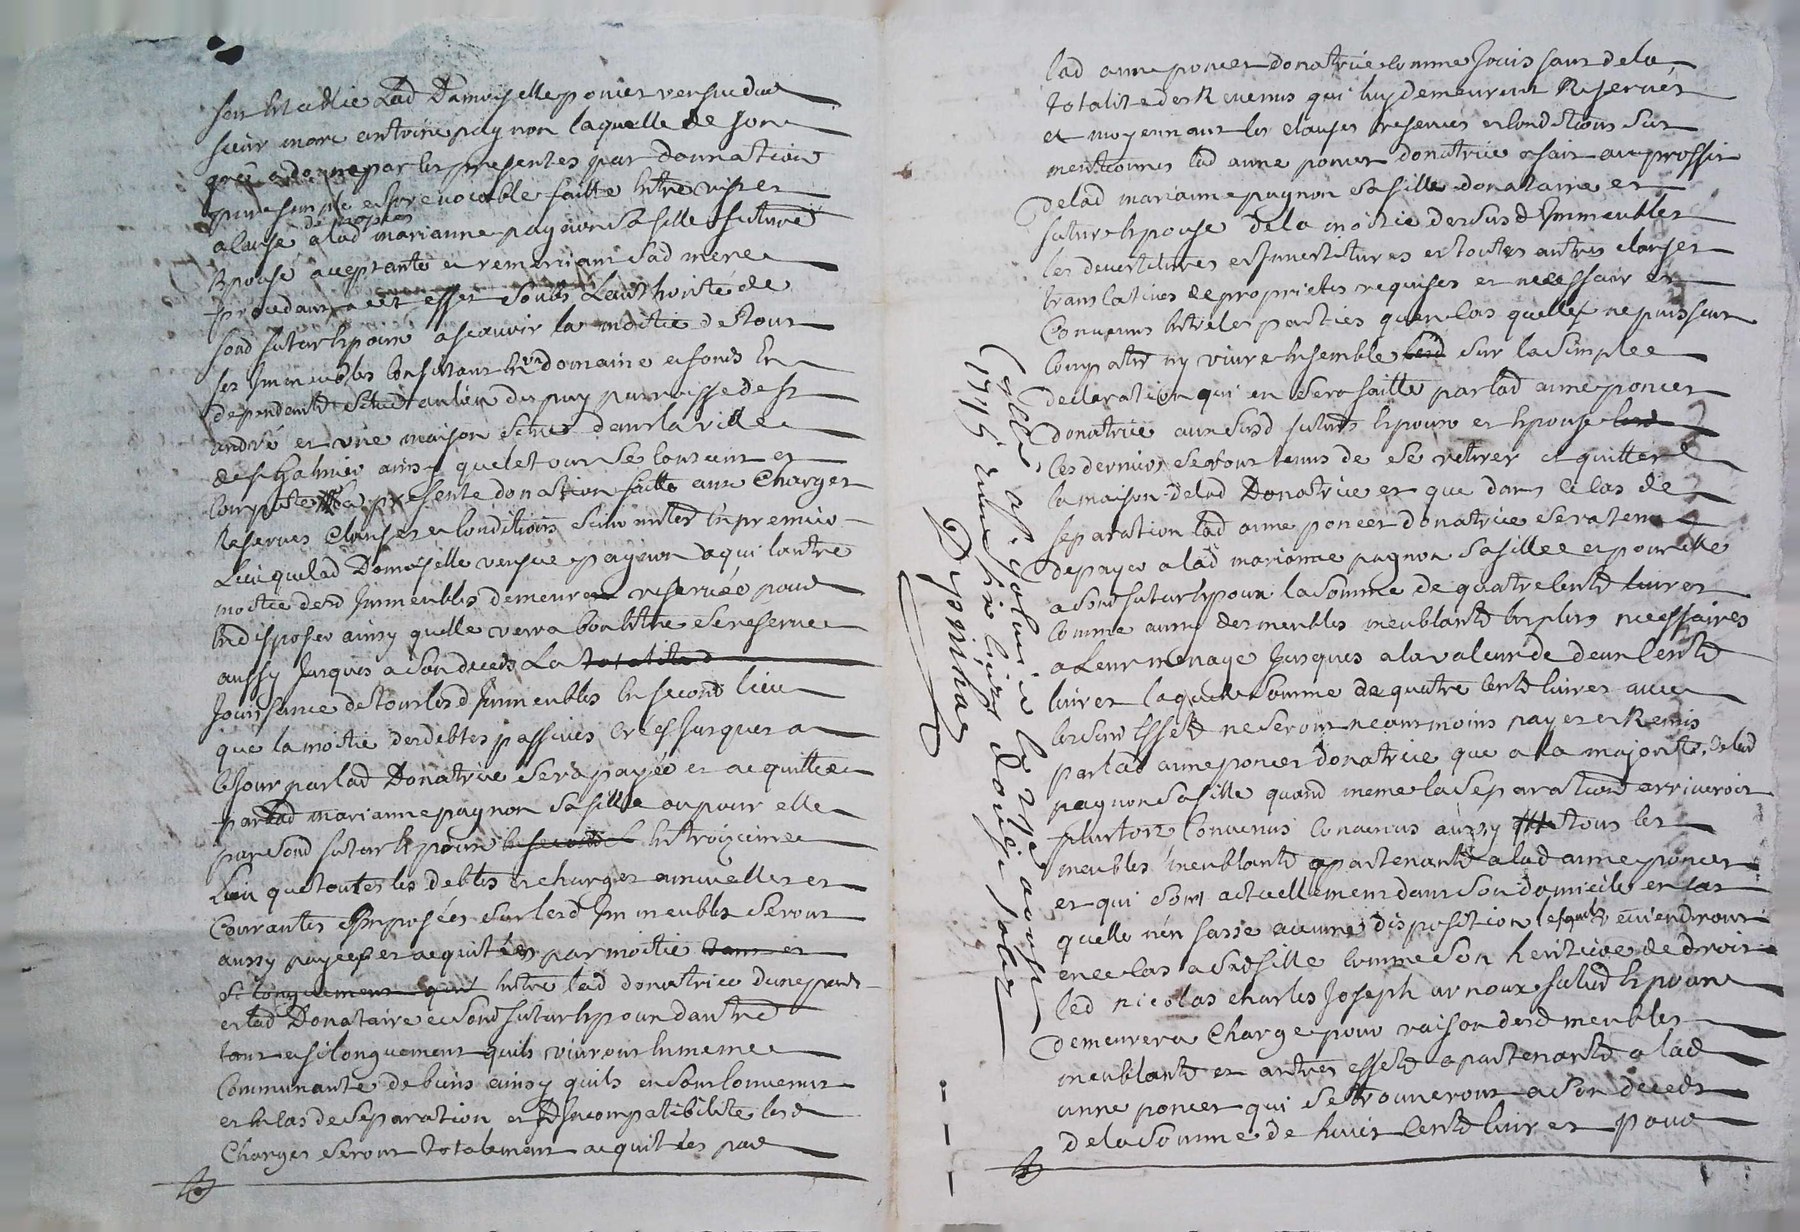 sest establie Lad Damoiselle poncet vefve dud
sieur marc antoine pagnon laquelle de son
gré a donne par les presentes par donnation
pure simple et irrevocable faitte entre vifs et
a cause de nopces a lad marianne pagnon sa fille future
Epouse aceptante et remerciant sad mere
procedant a cet effet soubs Lauthorité de
sond futur Epoux a scavoir la moitié de tous
ses Immeubles consistant En un domaine et fonds En
dependants situés au lieu du puy parroisse de st
andré et une maison situé dans la ville
de st chalmier ainsy que le tout se consiste et
comporte la presente donation faitte aux Charges
Reserves Clauses et conditions suivantes En premier
Lieu que lad Damoiselle vefve pagnon a qui lautre
moitié desd Immeubles demeure reservée pour
En disposer ainsy quelle verra bon Estre se reserve
aussy Jusques a son deceds La totalité
Jouissance de tous lesd Immeubles En second lieu
que la moitié des debtes passives créés Jusques a
ce Jour par lad Donatrice sera payée et acquittée
par lad marianne pagnon sa fille ou pour elle
par sond futur Epoux En troizieme
Lieu que toutes les debtes et charges annuelles et
Courantes Imposées sur lesd Immeubles seront
aussy payées et acquitées par moitié tant et
si longuement quil Entre lad donatrice dune part
et lad Donataire et sond futur Epoux dautre
tant et si longuement quils vivront En meme
Communauté de biens ainsy quils en sont convenus
et En cas de separation et d'Incompatibilité lesd
Charges seront totalement acquitées par
lad anne poncet donatrice comme Jouissant de la
totalité des Revenus qui luy demeurent Reservés
et moyennant les clauses reserves et conditions sus
mentionnés lad anne poncet donatrice a fait au proffit
de lad marianne pagnon sa fille donataire et
future Epouse de la moitié desdusd Immeubles
les devertitures et Investitures et toutes autres clauses
translatives de proprietés requises et necessaires
Convenus Entre les parties quen cas quelles ne puissent
compatir ny vivre Ensemble sur la simple
declaration qui en sera faitte par lad anne poncet
donatrice aux susd futurs Epoux et Epouse
ces derniers seront tenus de se retirer et quitter
la maison de lad Donatrice et que dans ce cas de
separation lad anne poncet donatrice sera tenue
de payer a lad marianne pagnon sa fille et pour elle
a sond futur Epoux la somme de quatre cents livres
comme aussy des meubles meublants les plus necessaires
a Leur menage Jusques a la valeur de deux cents
livres laquelle somme de quatre cents livres avec
lesdits Effets ne seront neantmoins payes et Remis
par lad anne poncet donatrice que a la majorité de lad
pagnon sa fille quand meme la separation arriveroit
plustost Convenus convenus aussy tous les
meubles meublants apartenants a lad anne poncet
et qui sont actuellement dans son domicile en cas
quelle nen fasse aucune disposition lesquels reviendront
en ce cas a sad fille comme son heritiere de droit
led nicolas charles Joseph arnoux futur Epoux
demeurera Charge pour raison desd meubles
meublants et autres effets apartenants a lad
anne poncet qui se trouveront a son deceds
de la somme de huit cents livres pour